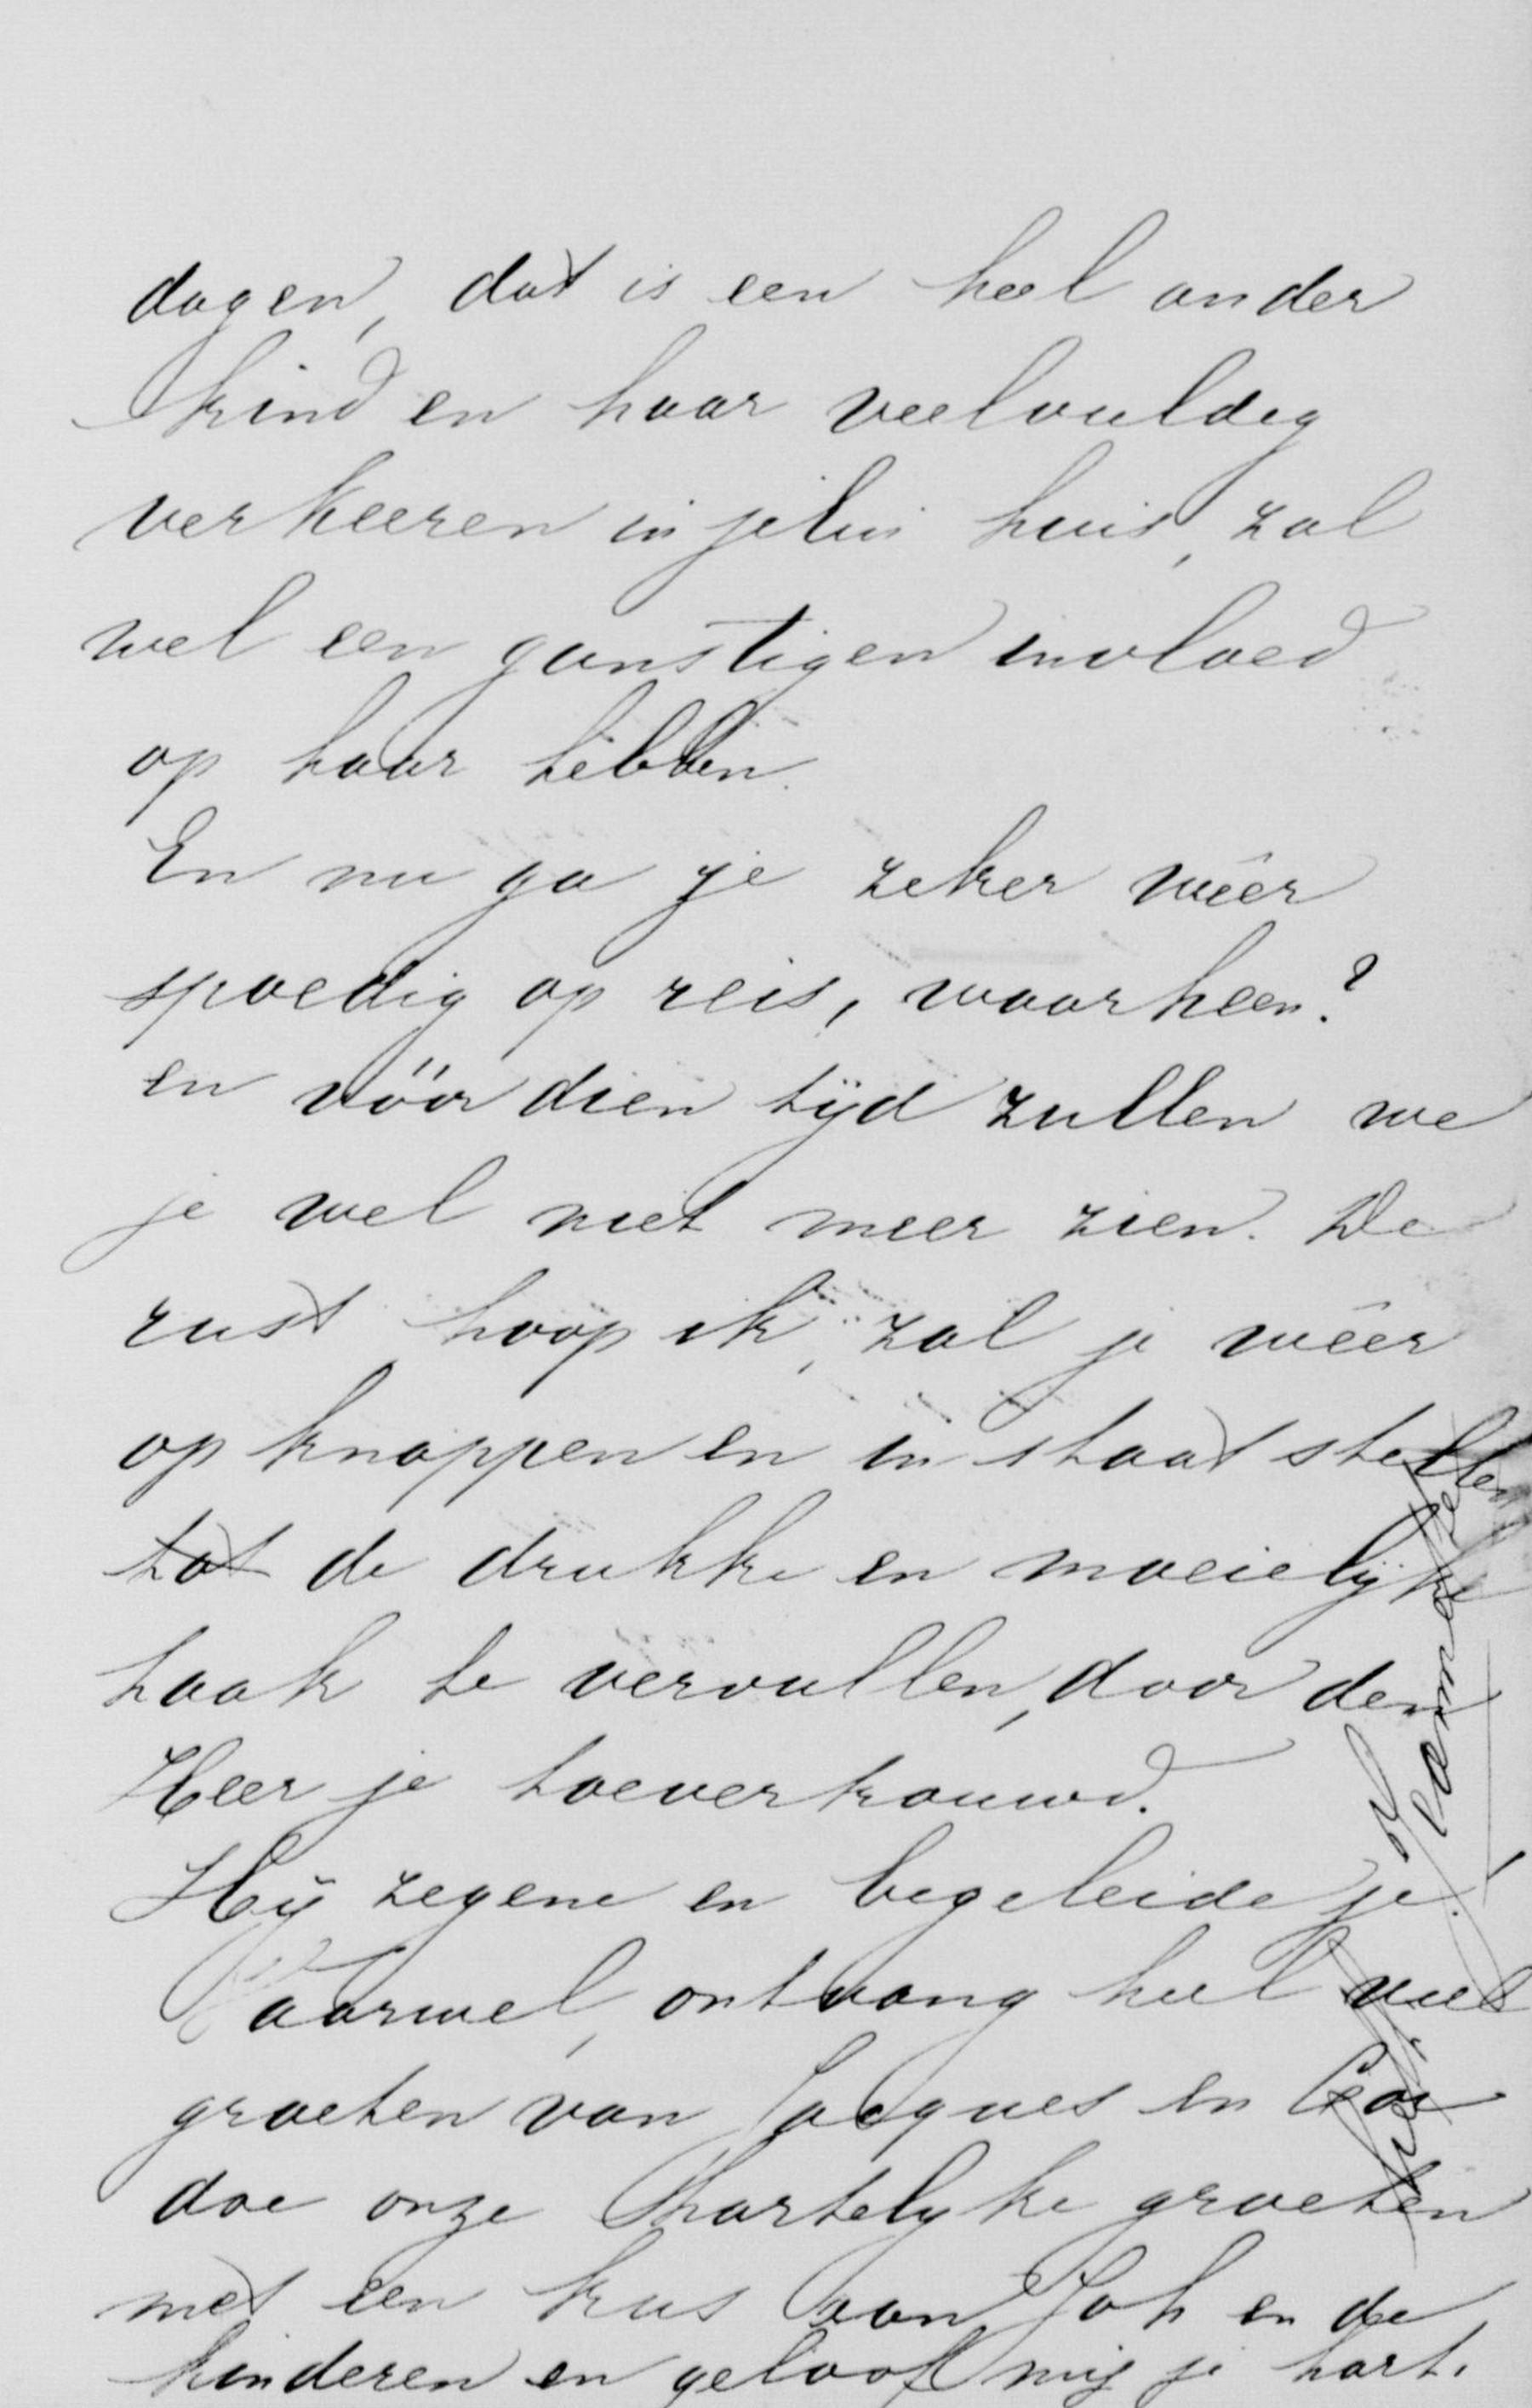 dagen, dat is een heel ander
kind en haar veelvuldig
verkeeren in jelui huis, zal
wel een gunstigen invloed
op haar hebben.
En nu ga je zeker wéér
spoedig op reis, waarheen?
en vóór dien tijd zullen we
je wel niet meer zien. De
rust hoop ik, zal je wéér
opknappen en in staat stellen
tot de drukke en moeielijke
taak te vervullen, door den
Heer je toevertrouwd.
Hij zegene en begeleide je!
Vaarwel, ontvang heel veel
groeten van Jacques en Cor
doe onze hartelijke groeten
met een kus aan Joh en de
kinderen en geloof mij je hart.